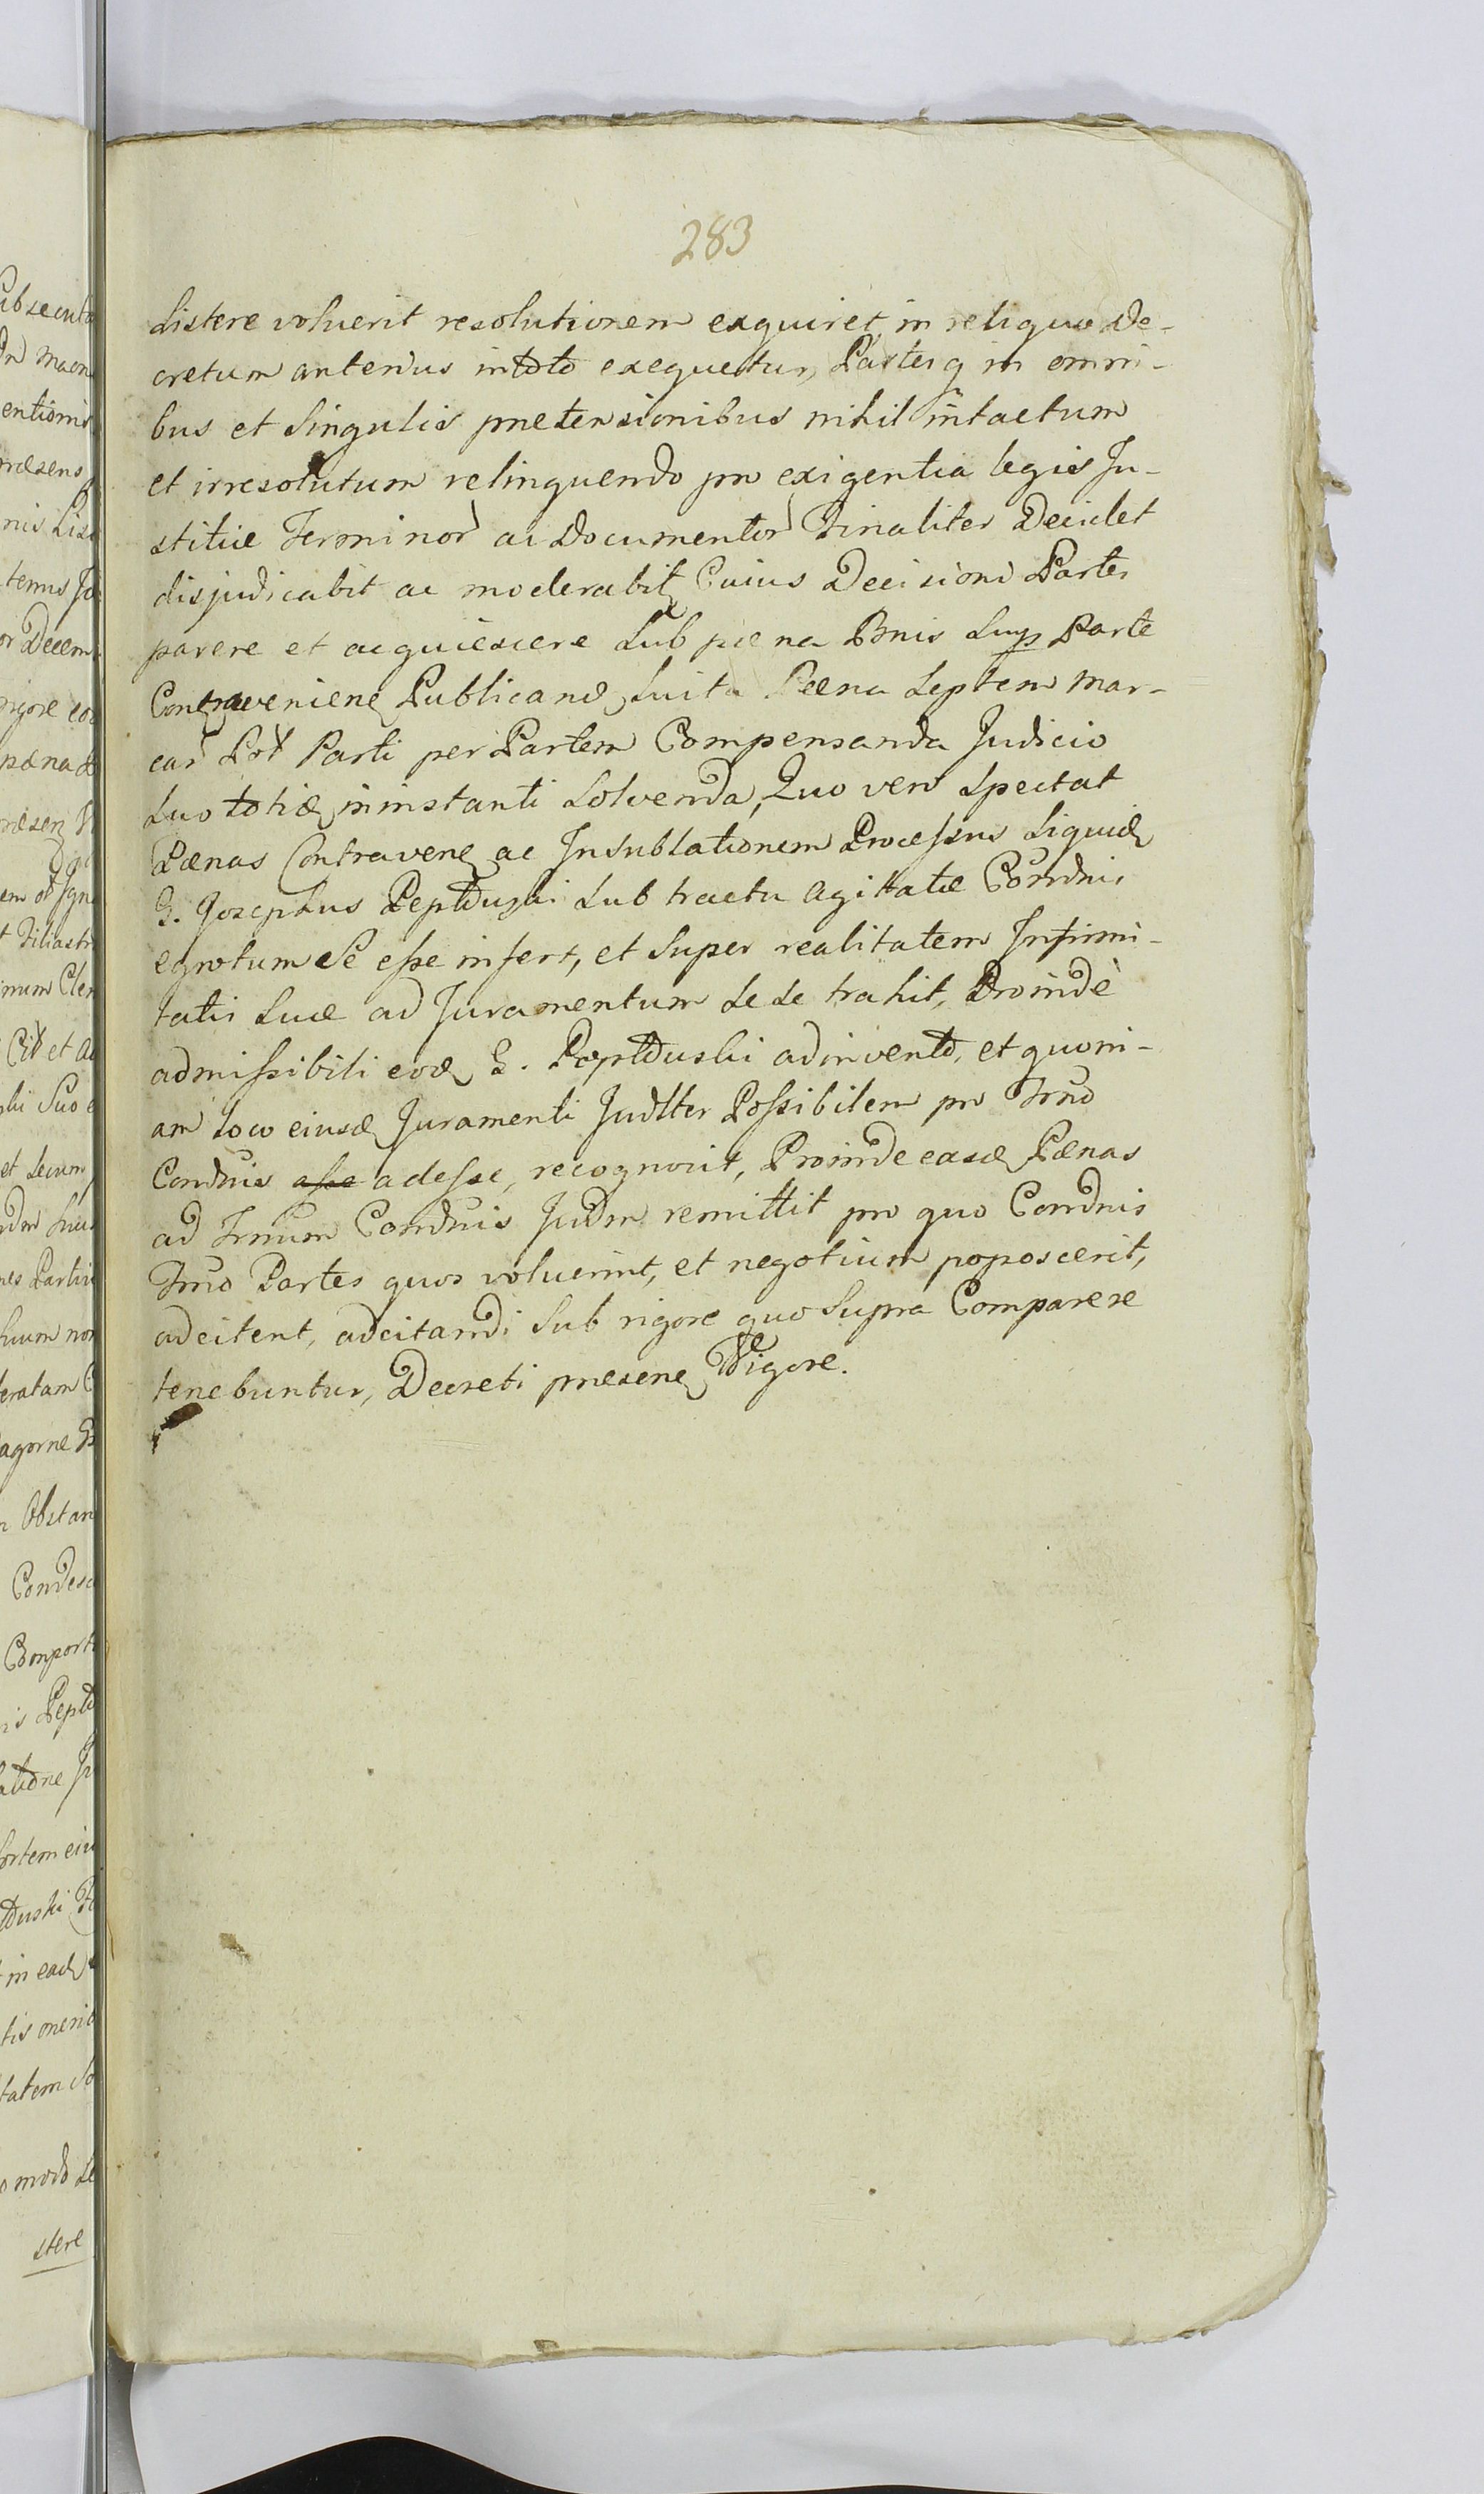 283
sistere voluerit resolutionem exquiret, in reliquo De-
cretum antenus in toto exequetur, Partes q in omni-
bus et singulis pnetensionibus nihil intactum
et irresolutum relinquendo pro exigentia legis Ju-
stitiæ Terminor ac Documentor Finaliter Decidet
disjudicabit ac moderabit, Cuius Decisioni Partes
parere et acquiescere sub pæna Bnis Parte
Contraveniene Publicand, luita Pæna Septem Mar-
car Parti per Partem Compensanda Judicio
suo toties in instanti solvenda, Quo vero spectat
Pænas Contravene ac Insublationem Processus Liquid
G. Josephus Pepłduski sub tractu agitatæ Condnis
egrotum se esse infert, et super realitatem Infirmi-
tatis suæ ad Juramentum sese trahit, Proindè
admissibili eod G. Pepłduski adinvento, et quoni-
am loco eiusd Juramenti Judtter Possibilem pro Trno
Condnis esse adesse, recognovit, Proinde easd Pænas
ad Trnum Condnis Judm remittit pro quo Condnis
Trno Partes quos voluerint, et negotium poposcerit,
adcitent, adcitandi sub rigore quo supra Comparere
tenebuntur, Decreti pnesene Vigore.
subsecuto
entionis
præsens
Decem
pæna
Filiastr
Cit et
Suo
et secum
Obstan
Condesc
Comport
ortem eiu
duski
in ead
tatem
modo
stere